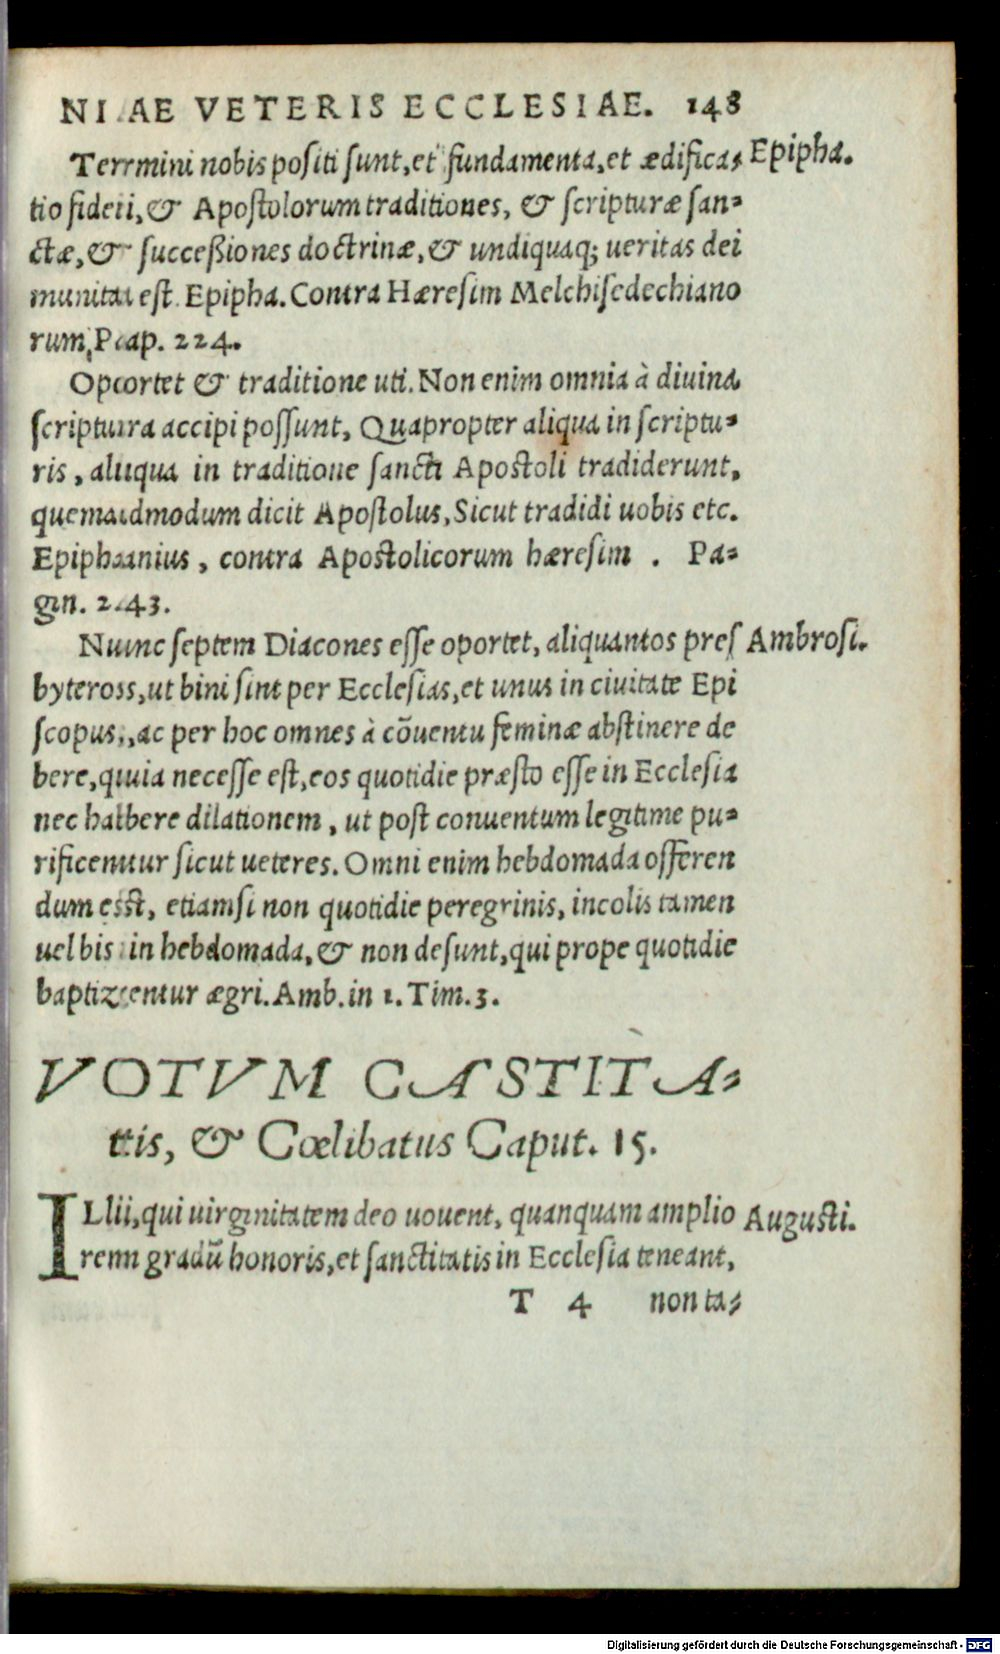 NIAE VETERIS ECCLESIAE. 148
Termini nobis positi sunt, et fundamenta, et ædifica- Epipha.
tio fidei, & Apostolorum traditiones, & scripturæ san-
ctæ, & succeßiones doctrinæ, & undiquaq; ueritas dei
munita est. Epipha. Contra Hæresim Melchisedechiano
rum, Pap. 224.
Oportet & traditione uti. Non enim omnia à diuina
scriptura accipi possunt, Quapropter aliqua in scriptu-
ris, aliqua in traditione sancti Apostoli tradiderunt,
quemadmodum dicit Apostolus, Sicut tradidi uobis etc.
Epiphanius, contra Apostolicorum hæresim. Pa-
gin. 243.
Nunc septem Diacones esse oportet, aliquantos pres Ambrosi.
byteros, ut bini sint per Ecclesias, et unus in ciuitate Epi
scopus, ac per hoc omnes à cōuentu feminæ abstinere de
bere, quia necesse est, eos quotidie præsto esse in Ecclesia
nec habere dilationem, ut post conuentum legitime pu-
rificentur sicut ueteres. Omni enim hebdomada offeren
dum est, etiamsi non quotidie peregrinis, incolis tamen
uel bis in hebdomada, & non desunt, qui prope quotidie
baptizentur ægri. Amb. in 1. Tim. 3.
VOTVM CASTITA-
tis, & Cœlibatus Caput. 15.
ILlii, qui uirginitatem deo uouent, quanquam amplio Augusti.
rem gradū honoris, et sanctitatis in Ecclesia teneant,
T 4 non ta-
Digitalisierung gefördert durch die Deutsche Forschungsgemeinschaft - DFG